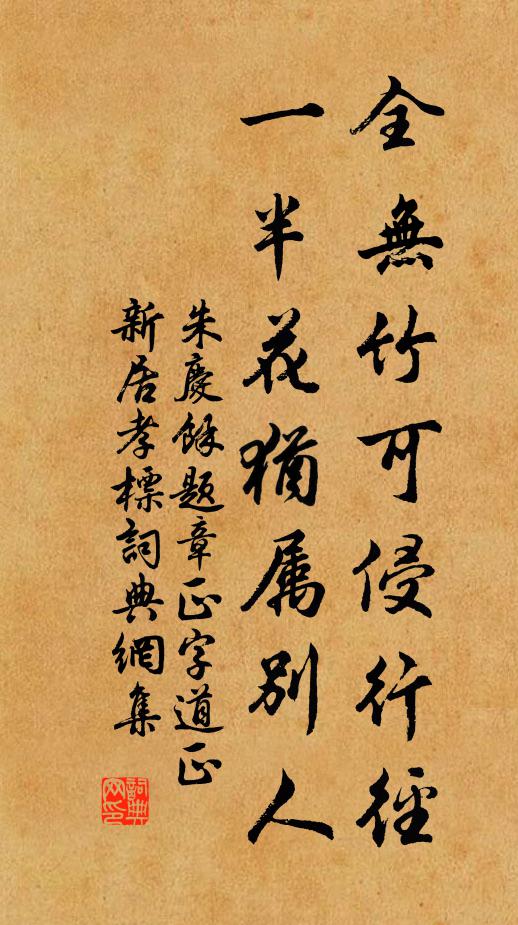 全無竹可侵行徑
一半花猶属別人
朱慶餘題章正字道正
新居孝標詞典網集
詞典网印